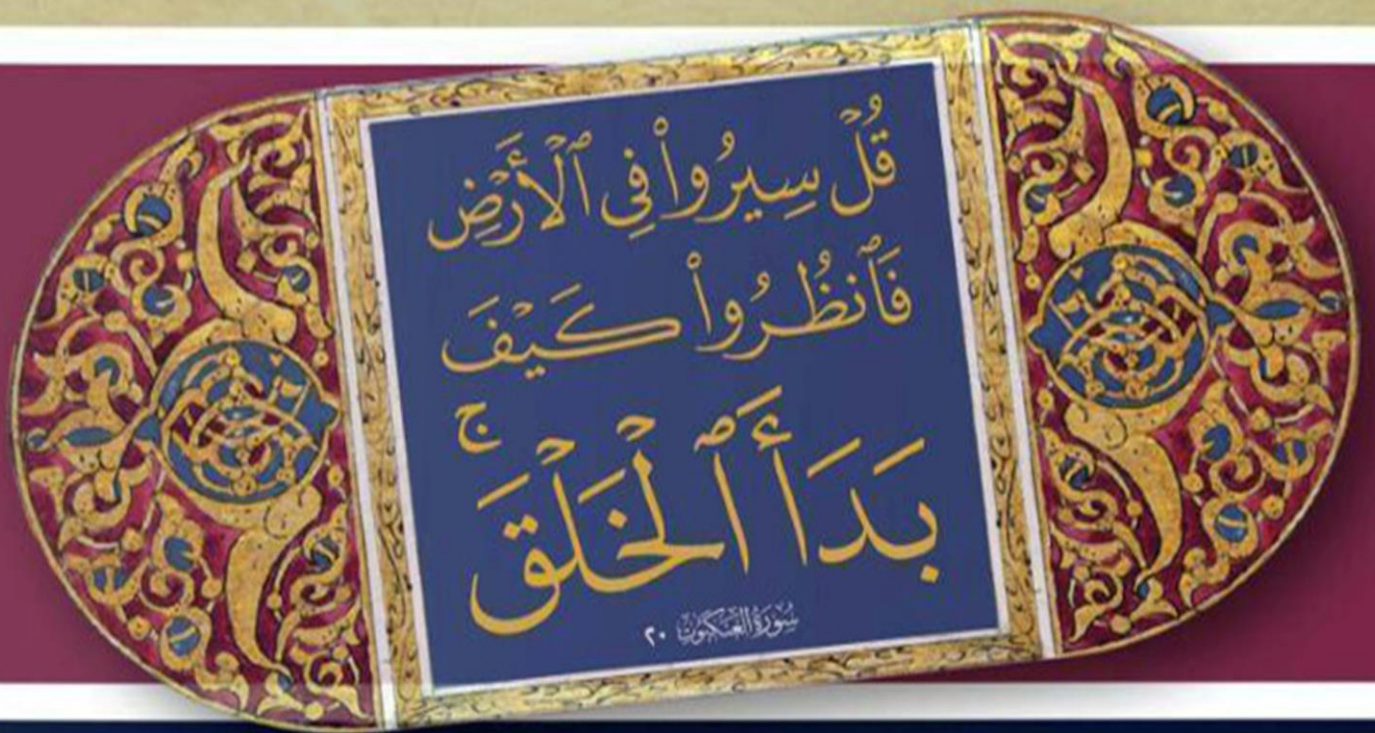 قُلۡ سِيرُواْ فِي ٱلۡأَرۡضِ
فَٱنظُرُواْ كَيۡفَ
بَدَأَ ٱلۡخَلۡقَۚ
سُورَةُ العَنكَبُوت ٢٠